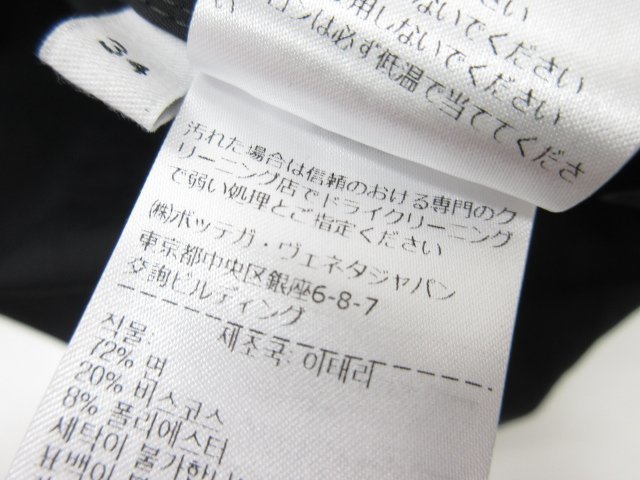 34
ださい
用しないでください
アイロンは必ず低温で当ててください
汚れた場合は信頼のおける専門のク
リーニング店でドライクリーニング
で弱い処理とご指定ください
(株)ボッテガ・ヴェネタジャパン
東京都中央区銀座6-8-7
交詢ビルディング
제조국: 이태리
직물:
72% 면
20% 비스코스
8% 폴리에스터
세탁이 불가한
표백이 불